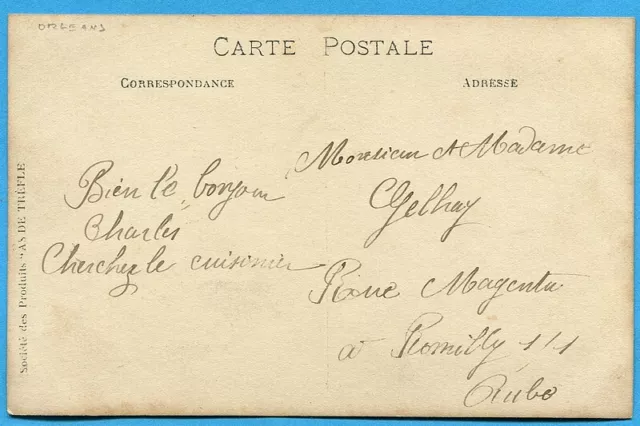 ORLEANS
CARTE POSTALE
CORRESPONDANCE
ADRESSE
Bien le bonjour
Charles
Cherchez le cuisinier
Monsieur et Madame
Gelhay
Rue Magenta
a Romilly s/s
Aube
Société des Produits "AS DE TRÈFLE